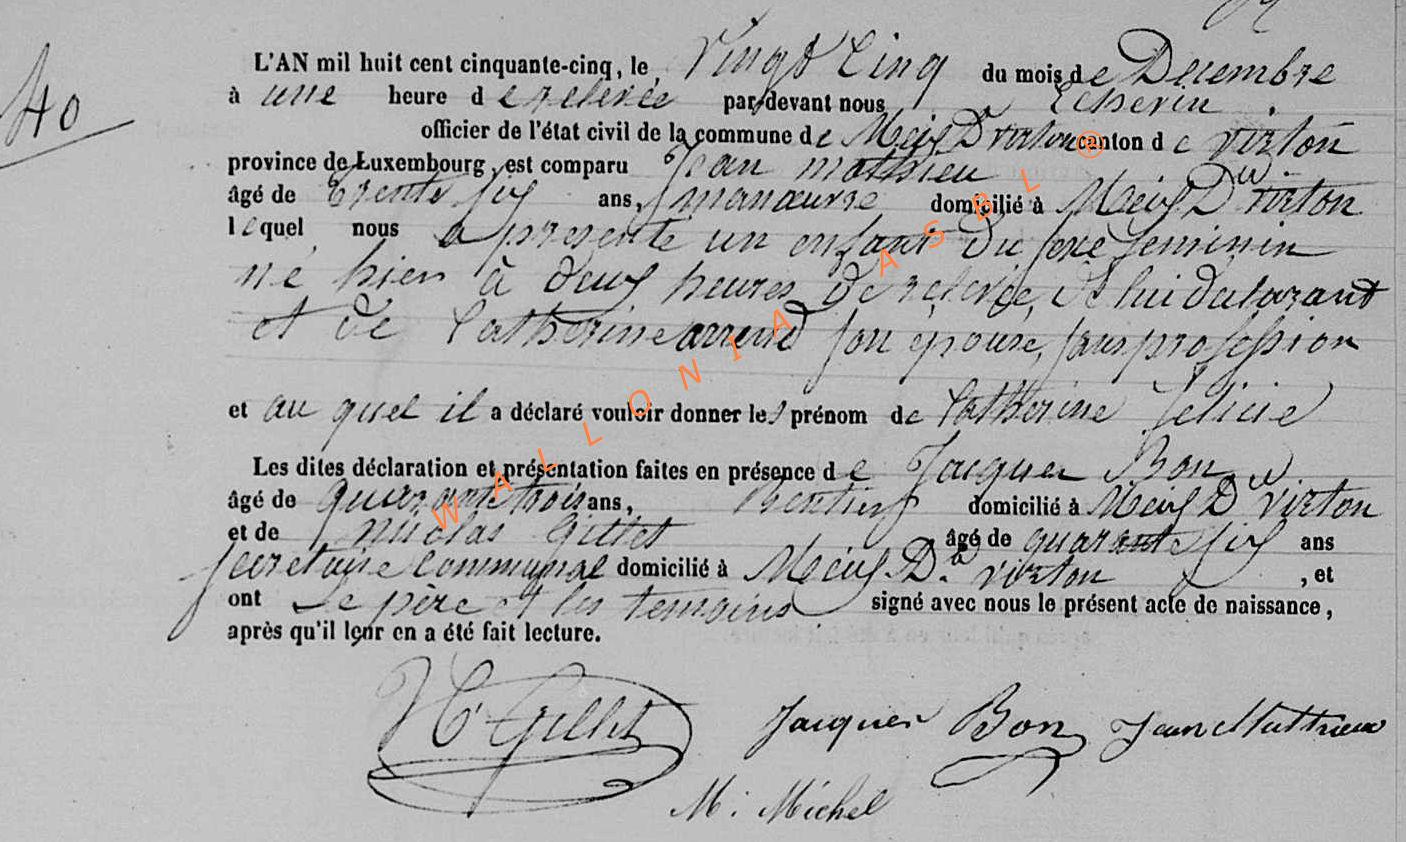 40
L'AN mil huit cent cinquante-cinq, le Vingt Cinq du mois de Decembre
à une heure de relevée par-devant nous Echevin
officier de l'état civil de la commune de Meix Dt virton canton de virton
province de Luxembourg, est comparu Jean mathieu
âgé de trente six ans, manœuvre domicilié à Meix Dt virton
lequel nous a presenté un enfant du sexe feminin
né hier à deux heures de relevée, de lui declarant
et de Catherine arrend son épouse, sans profession
et au quel il a déclaré vouloir donner les prénom de Catherine felicie
Les dites déclaration et présentation faites en présence de Jacques Bon
âgé de quarante trois ans, Rentier domicilié à Meix Dt virton
et de Nicolas Gillet âgé de quarante six ans
secretaire communal domicilié à Meix Dt virton, et
ont Le père et les temoins signé avec nous le présent acte de naissance,
après qu'il leur en a été fait lecture.
N Gillet Jacques Bon Jean Mathieu
M. Michel
WALLONIA ASBL ®